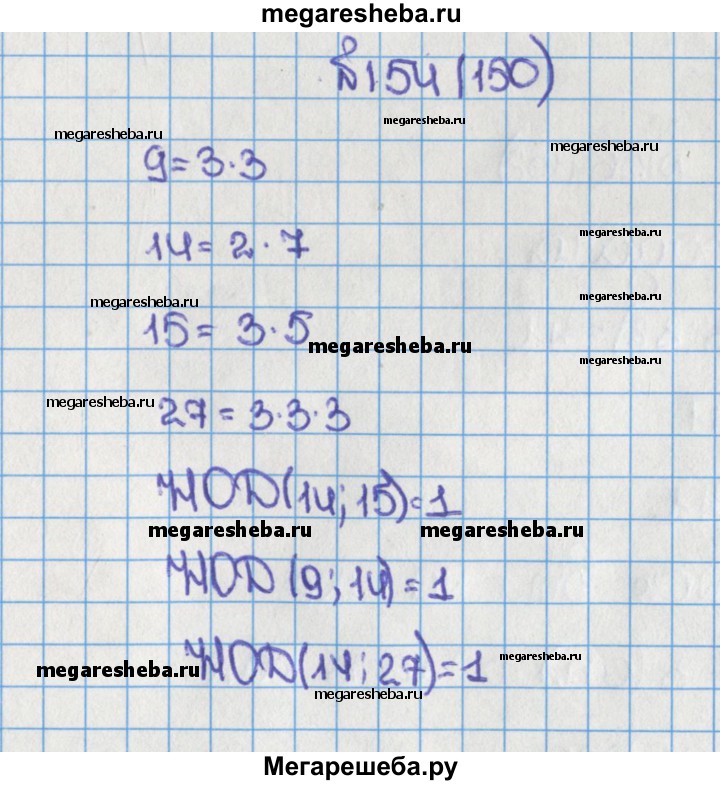 megaresheba.ru
№154 (150)
megaresheba.ru
megaresheba.ru
megaresheba.ru
9=3·3
megaresheba.ru
14=2·7
megaresheba.ru
megaresheba.ru
15=3·5
megaresheba.ru
megaresheba.ru
megaresheba.ru
27=3·3·3
НОД(14;15)=1
megaresheba.ru
megaresheba.ru
НОД(9;14)=1
НОД(14;27)=1
megaresheba.ru
megaresheba.ru
megaresheba.ru
Мегарешеба.ру